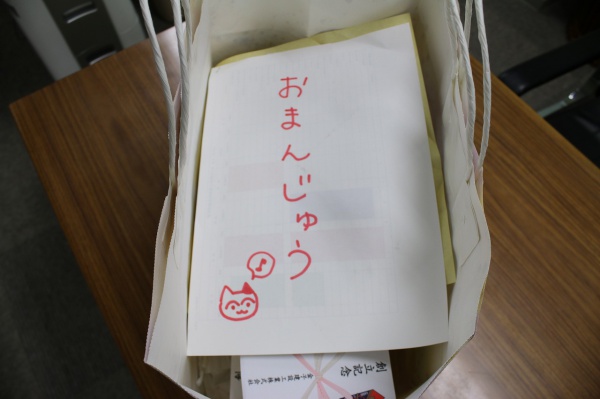 おまんじゅう
創立記念